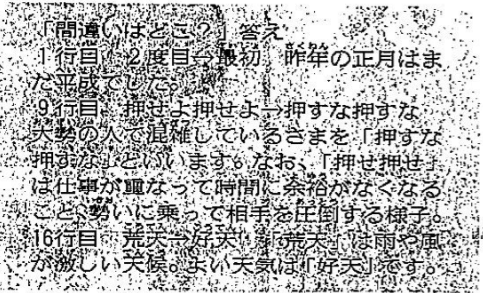 「間違いはどこ？」答え
1行目　2度目→最初　昨年の正月はま
だ平成でした。
9行目　押せよ押せよ→押すな押すな
大勢の人で混雑しているさまを「押すな
押すな」といいます。なお、「押せ押せ」
は仕事が重なって時間に余裕がなくなる
こと、勢いに乗って相手を圧倒する様子。
16行目　荒天→好天　「荒天」は雨や風
が激しい天候。よい天気は「好天」です。